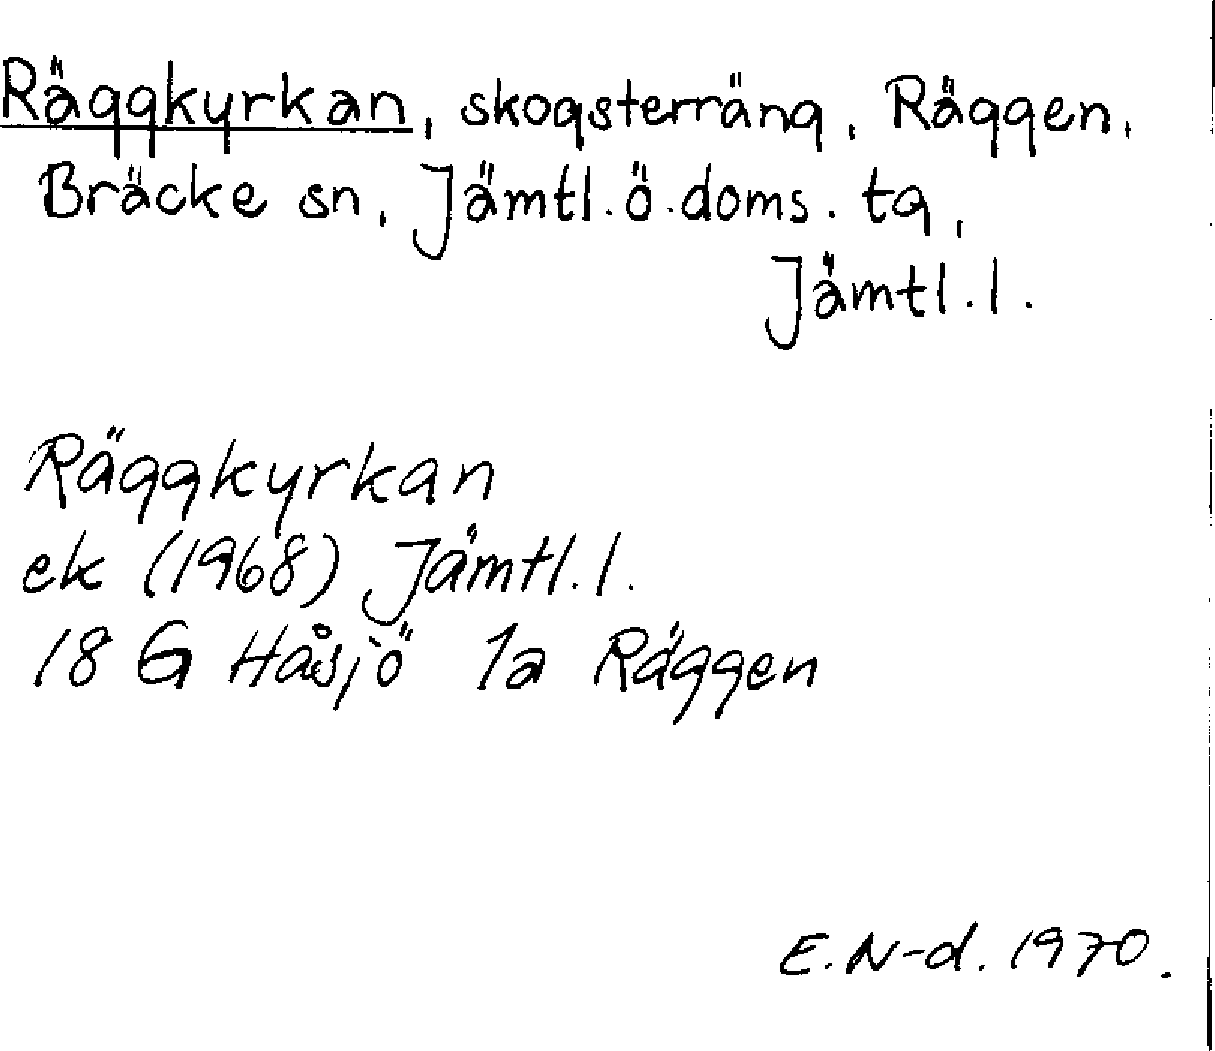 Räggkyrkan, skogsterräng, Räggen,
Bräcke sn, Jämtl. ö. doms. tg,
Jämtl. l.
Räggkyrkan
ek (1968) Jämtl. l.
18 G Håsjö 1a Räggen
E. N-d. 1970.